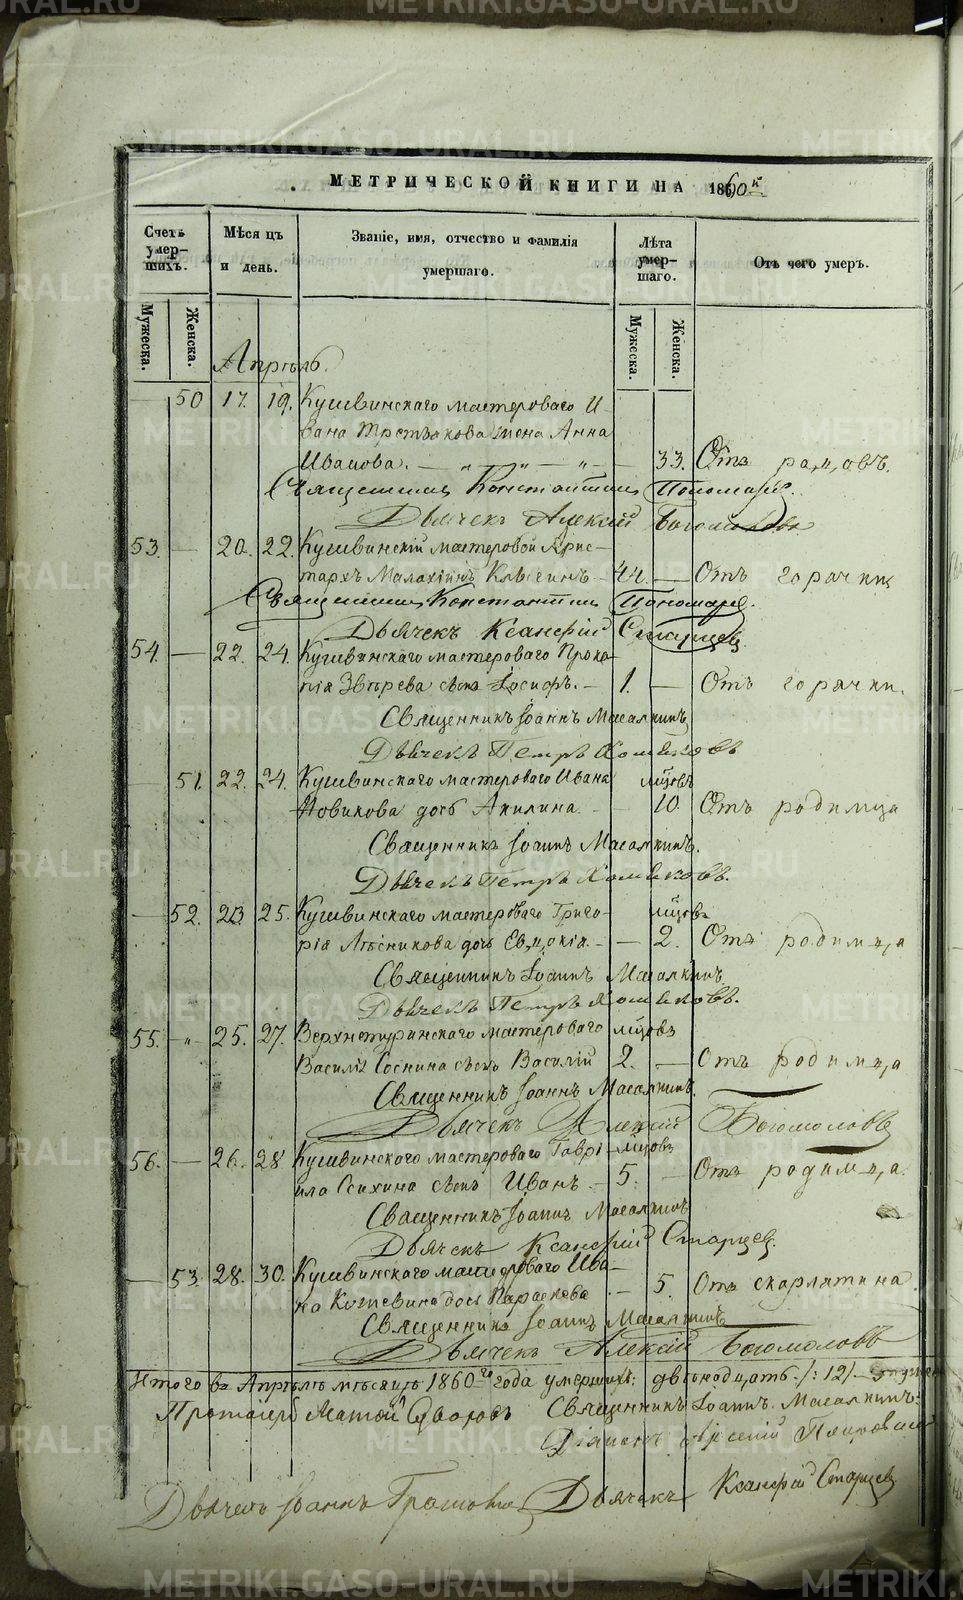 METRIKI.GASO-URAL.RU
МЕТРИЧЕСКОЙ КНИГИ НА 1860й
Счетъ умер-шихъ.
Мѣсяцъ и день.
Званіе, имя, отчество и фамилія умершаго.
Лѣта умер-шаго.
Отъ чего умеръ.
Мужеска.
Женска.
Мужеска.
Женска.
Апрѣль.
50 17. 19. Кушвинскаго мастероваго И-
вана Третьякова жена Анна
Иванова. 33. Отъ родовъ.
Священникъ Константинъ Пономаревъ.
Дьячекъ Алексій Богомоловъ
53. — 20. 22. Кушвинскій мастеровой Арис-
тархъ Малахіинъ 44. — Отъ горячки
Священникъ Константинъ Пономаревъ.
Дьячекъ Ксенофій Старцевъ
54. — 22. 24. Кушвинскаго мастероваго Проко-
пія Звѣрева сынъ Іосифъ. — 1. — Отъ горячки.
Священникъ Іоаннъ Масалкинъ
Дьячекъ Петръ Хомяковъ
— 51. 22. 24. Кушвинскаго мастероваго Ивана мцовъ
Новикова дочь Акилина. 10 Отъ родимца
Священникъ Іоаннъ Масалкинъ.
Дьячекъ Петръ Хомяковъ.
— 52. 23. 25. Кушвинскаго мастероваго Григо- мцовъ
рія Лѣсникова дочь Евдокія. — — 2. Отъ родимца
Священникъ Іоаннъ Масалкинъ
Дьячекъ Петръ Хомяковъ.
55. -"- 25. 27. Верхнетуринскаго мастероваго мцовъ
Василія Соснина сынъ Василій 2. — Отъ родимца
Священникъ Іоаннъ Масалкинъ.
Дьячекъ Алексій Богомоловъ
56. — 26. 28 Кушвинскаго мастероваго Гаврі- мцовъ
ила сынъ Иванъ. — 5. — Отъ родимца.
Священникъ Іоаннъ Масалкинъ
Дьячекъ Ксенофій Старцевъ.
— 53. 28. 30. Кушвинскаго мастероваго Ива-
на дочь Параскева — 5. Отъ скарлатина.
Священникъ Іоаннъ Масалкинъ
Дьячекъ Алексій Богомоловъ
Итого въ Апрѣлѣ мѣсяцѣ 1860го года умершихъ: двѣнадцать /:12/.
Протоіерей Священникъ Іоаннъ Масалкинъ.
Діаконъ Арсеній
Дьячекъ Іоаннъ Дьячекъ Ксенофій Старцевъ